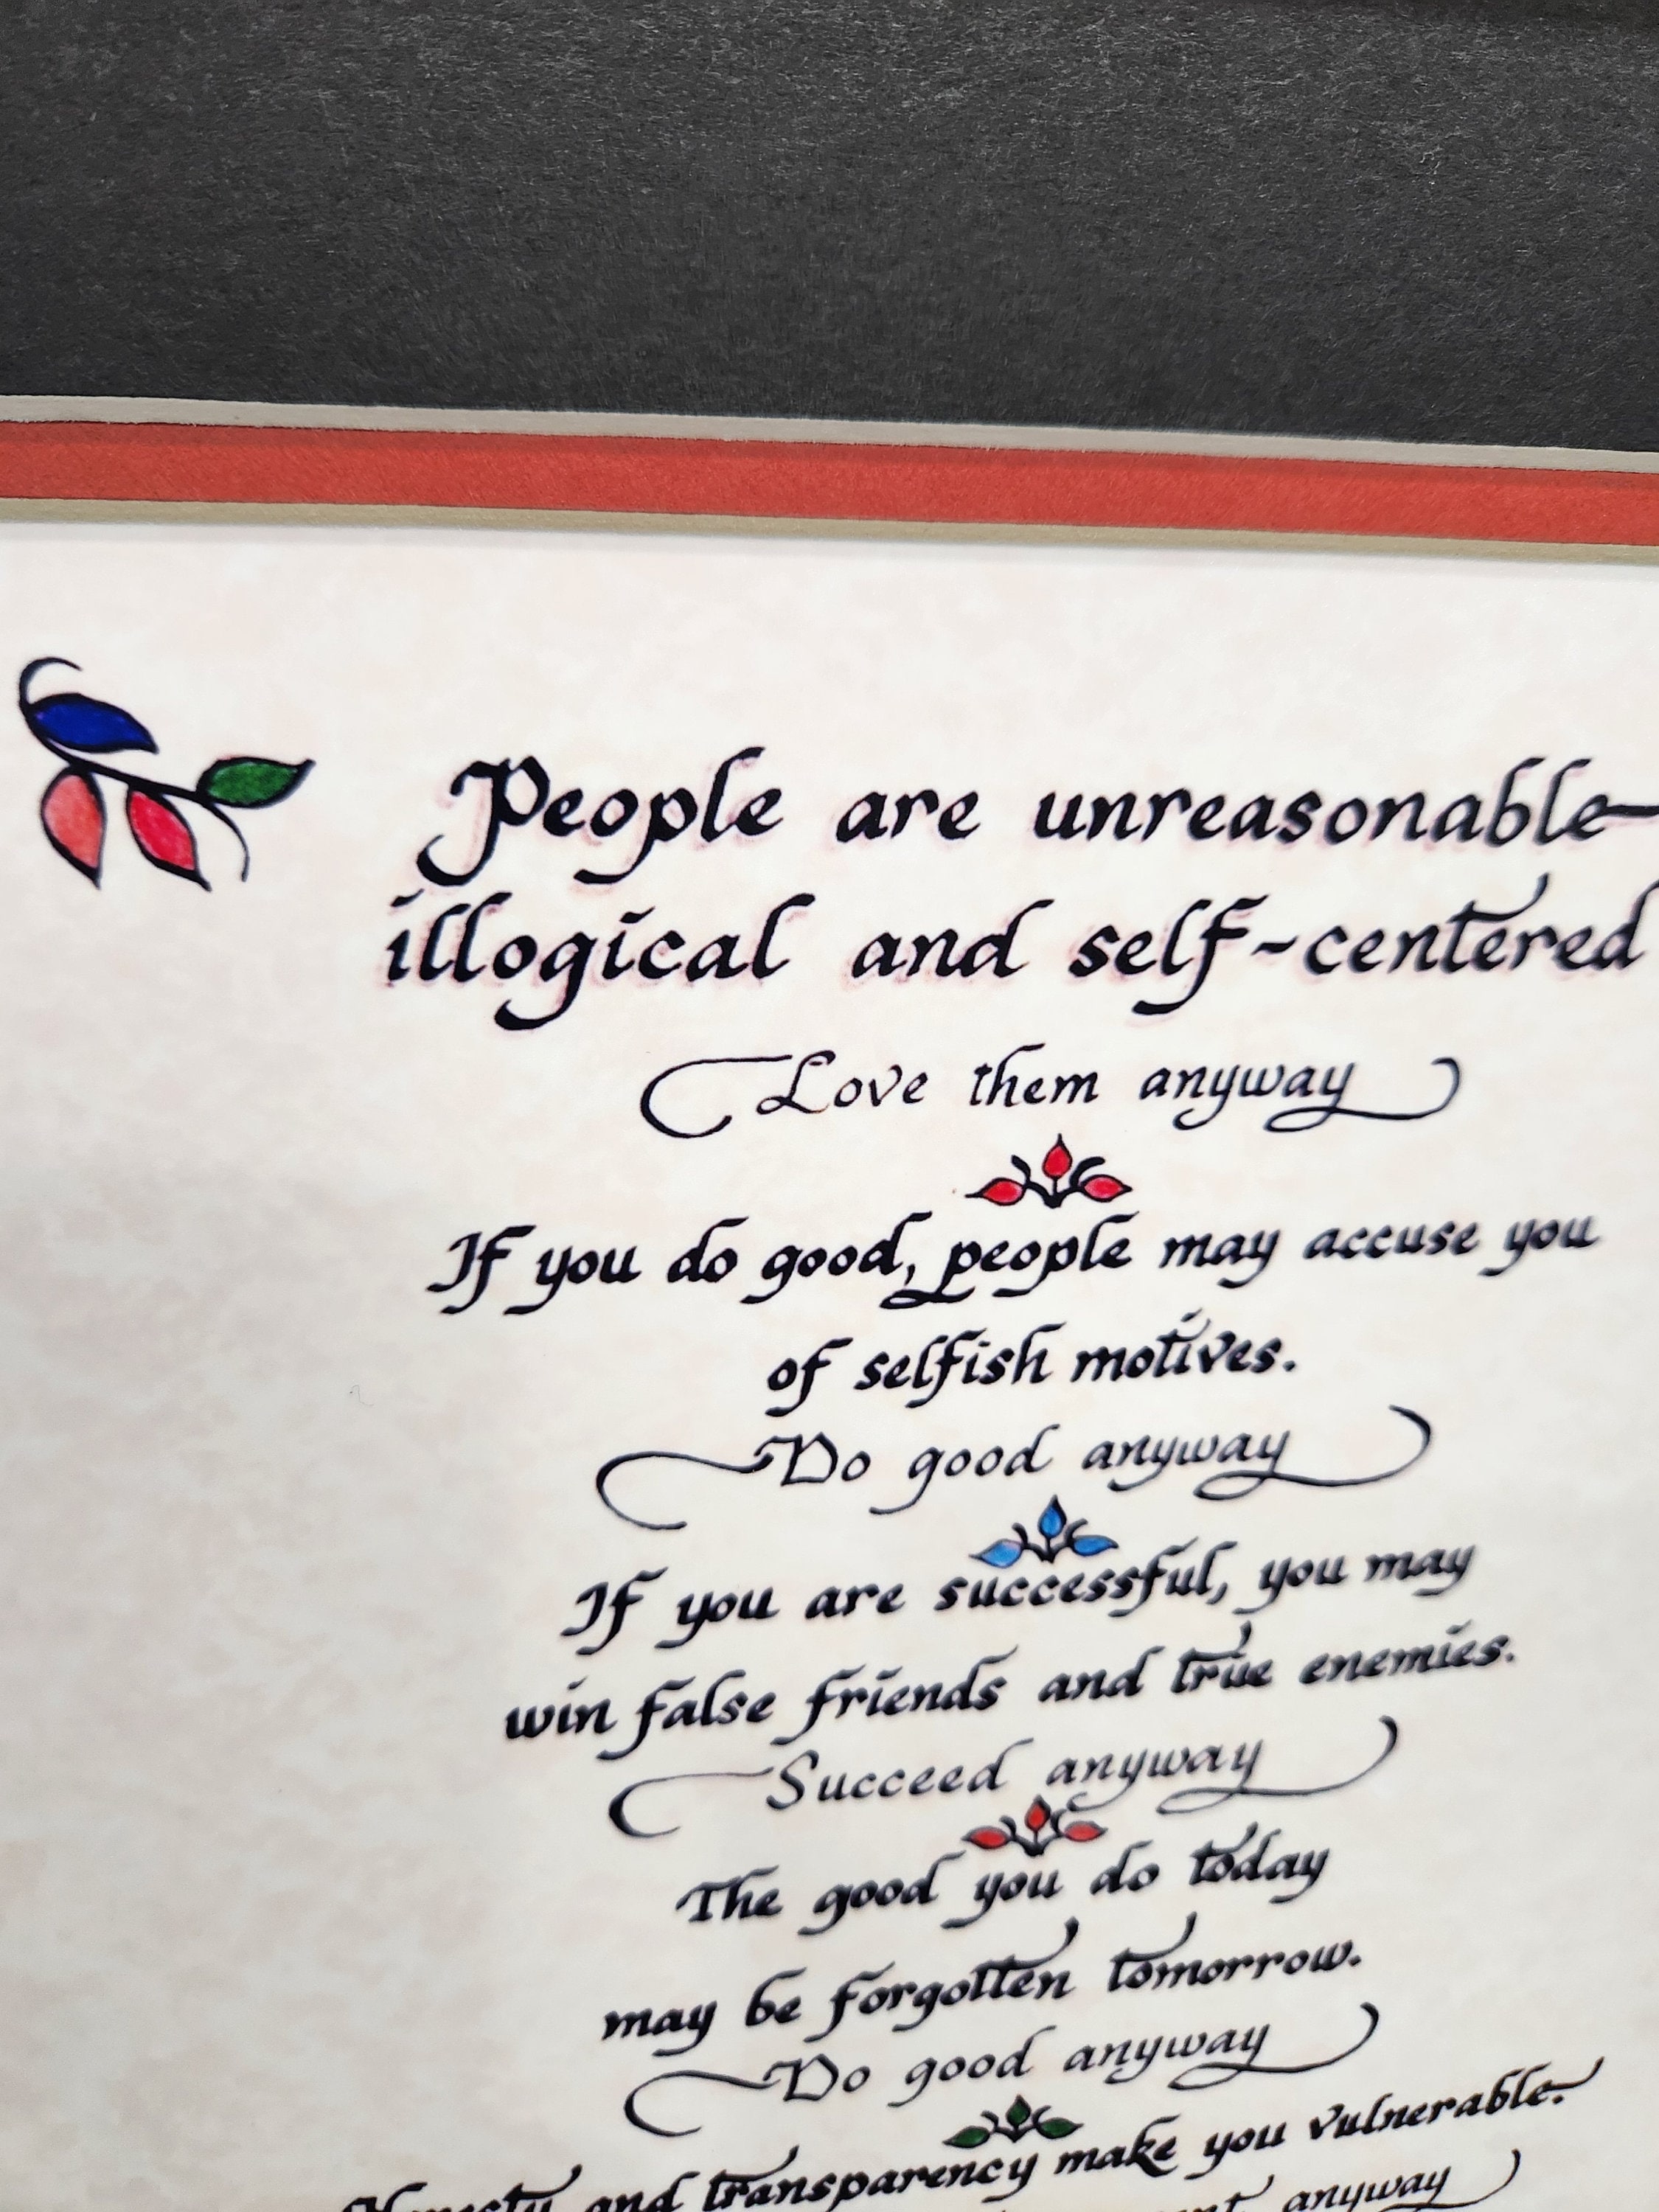 People are unreasonable
illogical and self-centered
Love them anyway
If you do good, people may accuse you
of selfish motives.
Do good anyway
If you are successful, you may
win false friends and true enemies.
Succeed anyway
The good you do today
may be forgotten tomorrow.
Do good anyway
and transparency make you vulnerable.
anyway